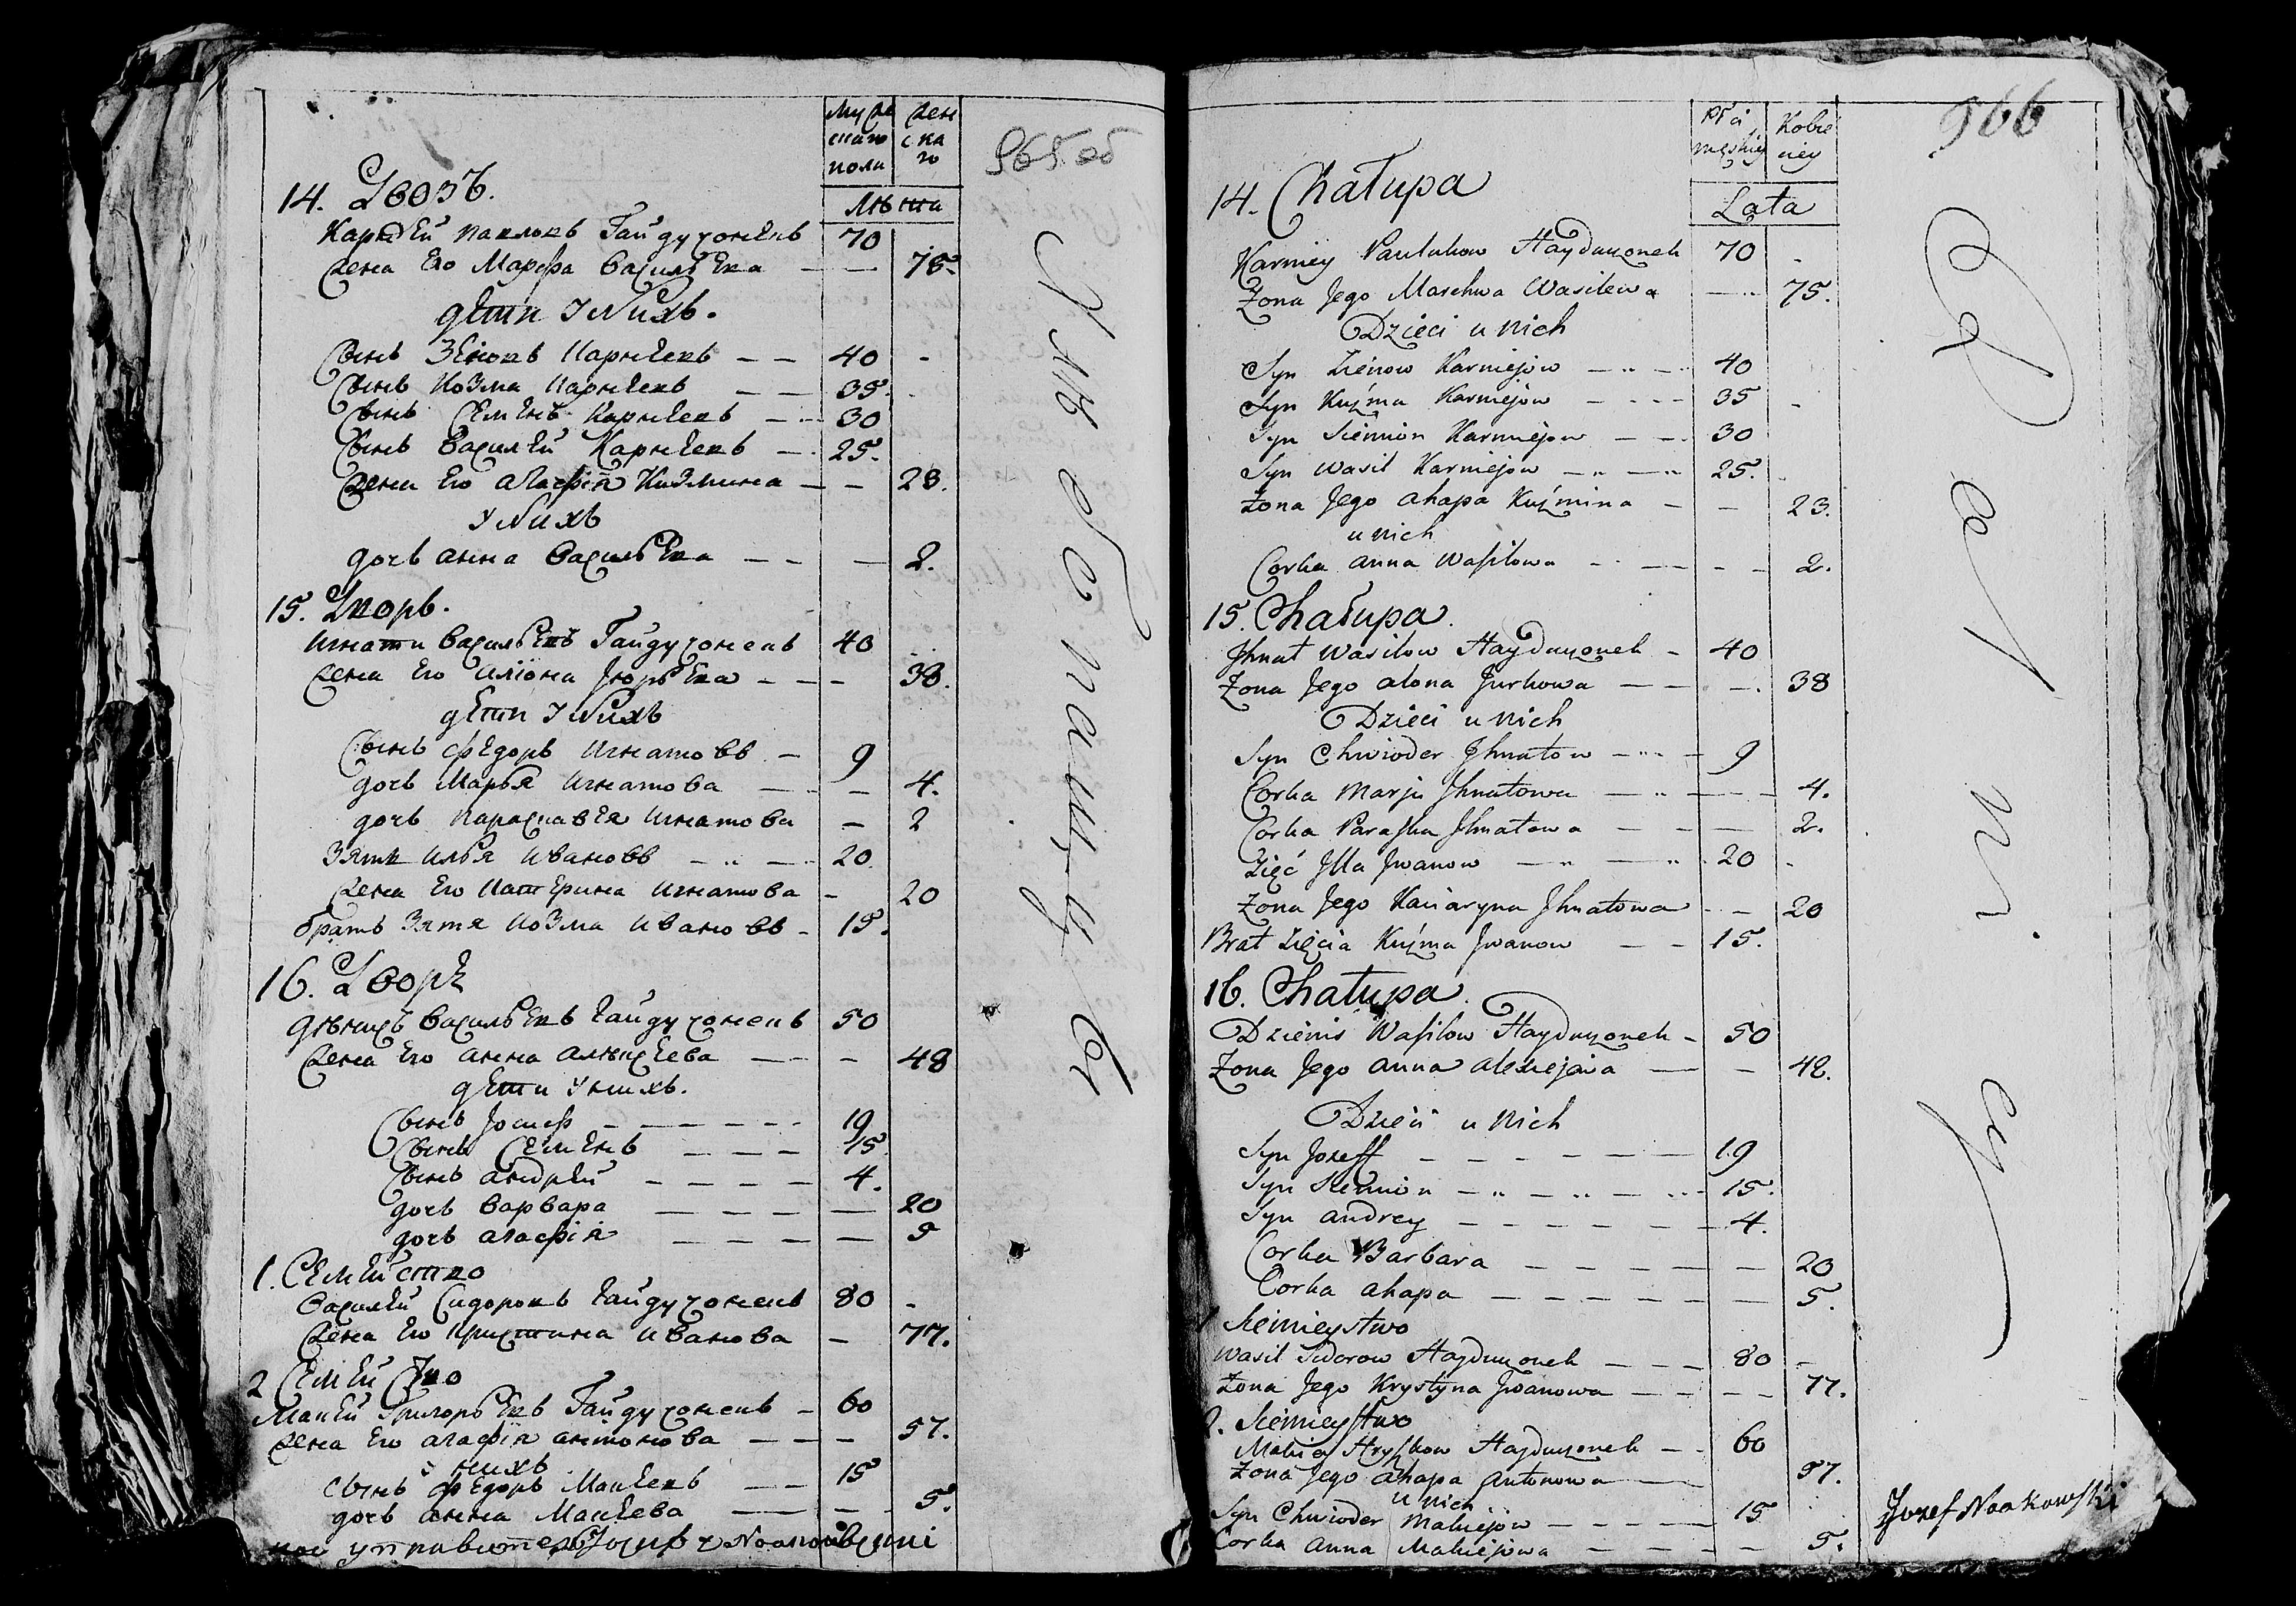 Мужескаго пола
Женскаго
Лѣта
965 об
14. Дворъ.
Карнѣй Павловъ Гайдучонекъ 70
Жена Его Марфа Васильева — 75.
дѣти У Нихъ.
Сынъ Зѣновъ Карнѣевъ — — 40 -
Сынъ Козма Карнѣевъ — — 35.
Сынъ Семѣнъ Карнѣевъ — 30
Сынъ Василѣй Карнѣевъ — 25.
Жена Его Агафія Кизмина — — 23.
У Нихъ
дочь Анна Васильева — — — 2.
15. Дворъ.
Игнати Васильевъ Гайдучонекъ 40
Жена Его Аліона Јюрьева — — — 38.
дѣти У Нихъ
Сынъ Федоръ Игнатовъ — 9
дочь Марья Игнатова — — 4.
дочь Параскавея Игнатова — 2
Зять Илья Ивановъ — — 20
Жена Его Катерина Игнатова — 20
братъ Зятя Козма Ивановъ — 15.
16. Дворъ
Дѣнисъ Васильевъ Гайдучонекъ 50
Жена Его Анна Алексѣева — — 48
дѣти У нихъ.
Сынъ Јосиф — — — 19
Сынъ Семѣнъ — — — 15.
Сынъ Андрѣй — — — — 4.
дочь Варвара — — — — 20
дочь Агафія — — — — 5
1. Семѣйство
Василѣй Сидоровъ Гайдучонекъ 80 -
Жена Его Кристина Иванова — 77.
2 Семѣйство
Макѣй Григорьевъ Гайдучонекъ — 60
Жена Его Агафія Антонова — — — 57.
У нихъ
Сынъ Федоръ Макѣевъ — — 15
дочь Анна Макѣева — — — 5.
Płci męskiej
Kobiecey
Lata
966
14. Chałupa
Karniey Pawlukow Hayduczonek 70 -
Żona Jego Marchwa Wasilewa — 75.
Dzieci u Nich
Syn Zienow Karniejow — „ — 40
Syn Kuźma Karniejow — — — 35 -
Syn Siemion Karniejow — — 30
Syn Wasil Karniejow — „ — „ 25.
Żona Jego Ahapa Kuźmina — — 23.
u Nich
Corka Anna Wasilowa — — — — 2.
15. Chałupa.
Jhnat Wasilow Hayduczonek — 40
Żona Jego Alona Jurkowa — — — 38
Dzieci u Nich
Syn Chwioder Jhnatow — „ — 9
Corka Marja Jhnatowa — „ — — 4.
Corka Paraska Jhnatowa — — — 2.
Zięć Jlla Jwanow — „ — „ 20 -
Żona Jego Kaciaryna Jhnatowa — — 20
Brat Zięcia Kuźma Jwanow — — 15.
16. Chałupa.
Dzienis Wasilow Hayduczonek — 50
Żona Jego Anna Alexiejowa — — 48.
Dzieci u Nich
Syn Jozeff — — — — — 19
Syn Siemion — „ — „ — „ 15.
Syn Andrey — — — — — 4.
Corka Barbara — — — — — 20
Corka Ahapa — — — — — 5.
1 Siemieystwo
Wasil Sidorow Hayduczonek — — — 80 —
Żona Jego Krystyna Jwanowa — — — — 77.
2. Siemieystwo
Makiey Hryszkow Hayduczonek — — 60
Żona Jego Ahapa Antonowa — 57.
u Nich
Syn Chwioder Makiejow — — — — 15
Corka Anna Makiejowa — — — — — 5.
Jozef Noakowski